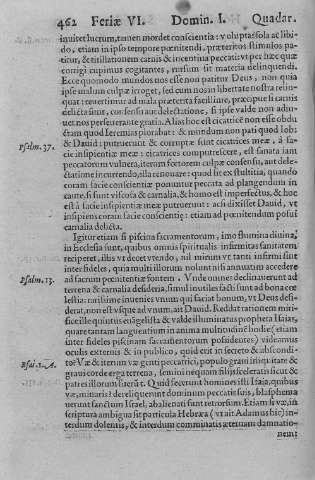 462 Feriæ VI. Domin. I. Quadar.
inuitet lucrum, tamen mordet conscientia: voluptas sola ac libi-
do, etiam in ipso tempore pœnitendi, præteritos stimulos pa-
titur, & titillationem carnis & incentiua peccati: vt per hæc quæ
corrigi cupimus cogitantes, rursum sit materia delinquendi.
Ecce quomodo mundos nos esse non patitur Deus, non quia
ipse malum culpæ irroget, sed cum nos in libertate nostra relin-
quat: reuertimur ad mala præterita facillime, præcipue si carnis
delicta sunt, consensu aut delectatione, si ipse valde non adiu-
uet nos perseuerante gratia. Alias hoc est cicatricē non esse obdu
ctam quod Ieremias plorabat: & mundum non pati quod Iobs
Psalm. 37.
& Dauid: putruerunt & corruptæ sunt cicatrices meæ, à fa-
cie insipientiæ meæ: cicatrices computrescere, est sanata iam
peccatorum vulnera, iterum fœtorem culpæ consensu, aut dele-
ctatione incurrendo, illa renouare: quod fit ex stultitia, quando
coram facie conscientiæ ponuntur peccata ad plangendum in
carne, si sunt viscosa & carnalia, & homo est imperfectus, & hoc
est à facie insipientiæ meæ putruerunt: ac si dixisset Dauid, vt
insipiens coram facie conscientiæ: etiam ad pœnitendum posui
carnalia delicta.
Igitur etiam si piscina sacramentorum, imo flumina diuina,
in Ecclesia sunt, quibus omnis spiritualis infirmitas sanitatem
reciperet, illis vt decet vtendo, nil minum vt tanti infirmi sint
inter fideles, quia multi illorum nolunt nisi annuatim accedere
ad sacrum pœnitentiæ fontem. Vnde omnes declinauerunt ad
Psalm. 13.
terrena & carnalia desideria, simul inutiles facti sunt ad bona cœ
lestia: rarissime inuenies vnum qui faciat bonum, vt Deus desi-
derat, non est vsque ad vnum, ait Dauid. Reddit rationem miri-
fice ille quintus euāgelista & valde illuminatus propheta Isaias,
quare tantam languentium in anima multitudinē hodie (etiam
inter fideles piscinam sacramentorum possidentes) videamus
oculis externis & in publico, quid erit in secreto & abscondi-
Esai. 1. A.
to? Væ & iterum væ genti peccatrici, populo graui iniquitate &
graui corde erga terrena, semini nequam filijs sceleratis sicut &
patres illorum fuerūt. Quid fecerunt homines isti Isaia, quibus
væ, minaris? dereliquerunt dominum peccatis suis, blasphema
uerunt sanctum Israel, abalienati sunt retrorsum. Etiam si væ, in
scriptura ambigua sit particula Hebræa (vt ait Adamus hic) in-
terdum dolentis, & interdum comminatis æternam damnatio-
nem: